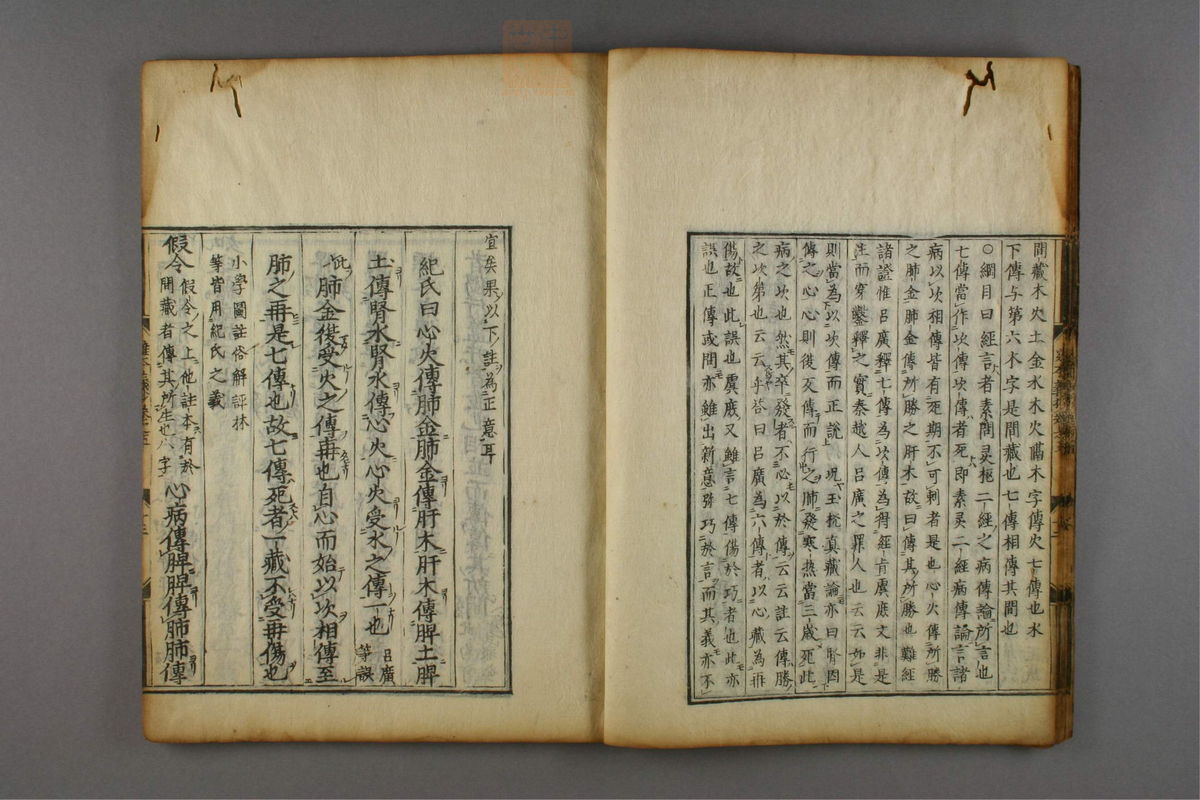 間藏木火土金水木火隔木字傳火七傳也水
下傳与第六木字是間藏也七傳相傳其間也
○綱目曰經言者素問灵枢二經之病傳論所言也
七傳當作次傳次傳者死即素灵二經病傳論言諸
病以次相傳皆有死期不可刺者是也心火傳所勝
之肺金肺金傳所勝之肝木故曰傳其所勝也難經
諸證惟呂廣釋七傳為次傳為得經肯虞庶文非是
注而穿鑿釋之實秦越人呂廣之罪人也云云如是
則當為以次傳而正說況玉机真藏論亦曰腎因
傳之心心則復反傳而行之肺發寒熱當三歲死此
病之次也然其卒發者不必以於傳云云註云傳勝
之次第也云云乎答曰呂廣為六傳者以心藏為非
傷故也此誤也虞庶又雖言七傳傷於巧者也此亦
誤也正傳或問亦雖出新意殊巧於言而其義亦不
宜矣果以下註為正意耳
紀氏曰心火傳肺金肺金傳肝木肝木傳脾土脾
土傳腎水腎水傳心火心火受水之傳一也 呂廣等誤
此肺金復受火之傳再也自心而始以次相傳至
肺之再是七傳也故七傳死者一藏不受再傷也
小學圖註俗解評林
等皆用紀氏之義
假令 假令之上他註本有於
間藏者傳其所生也八字 心病傳脾脾傳肺肺傳